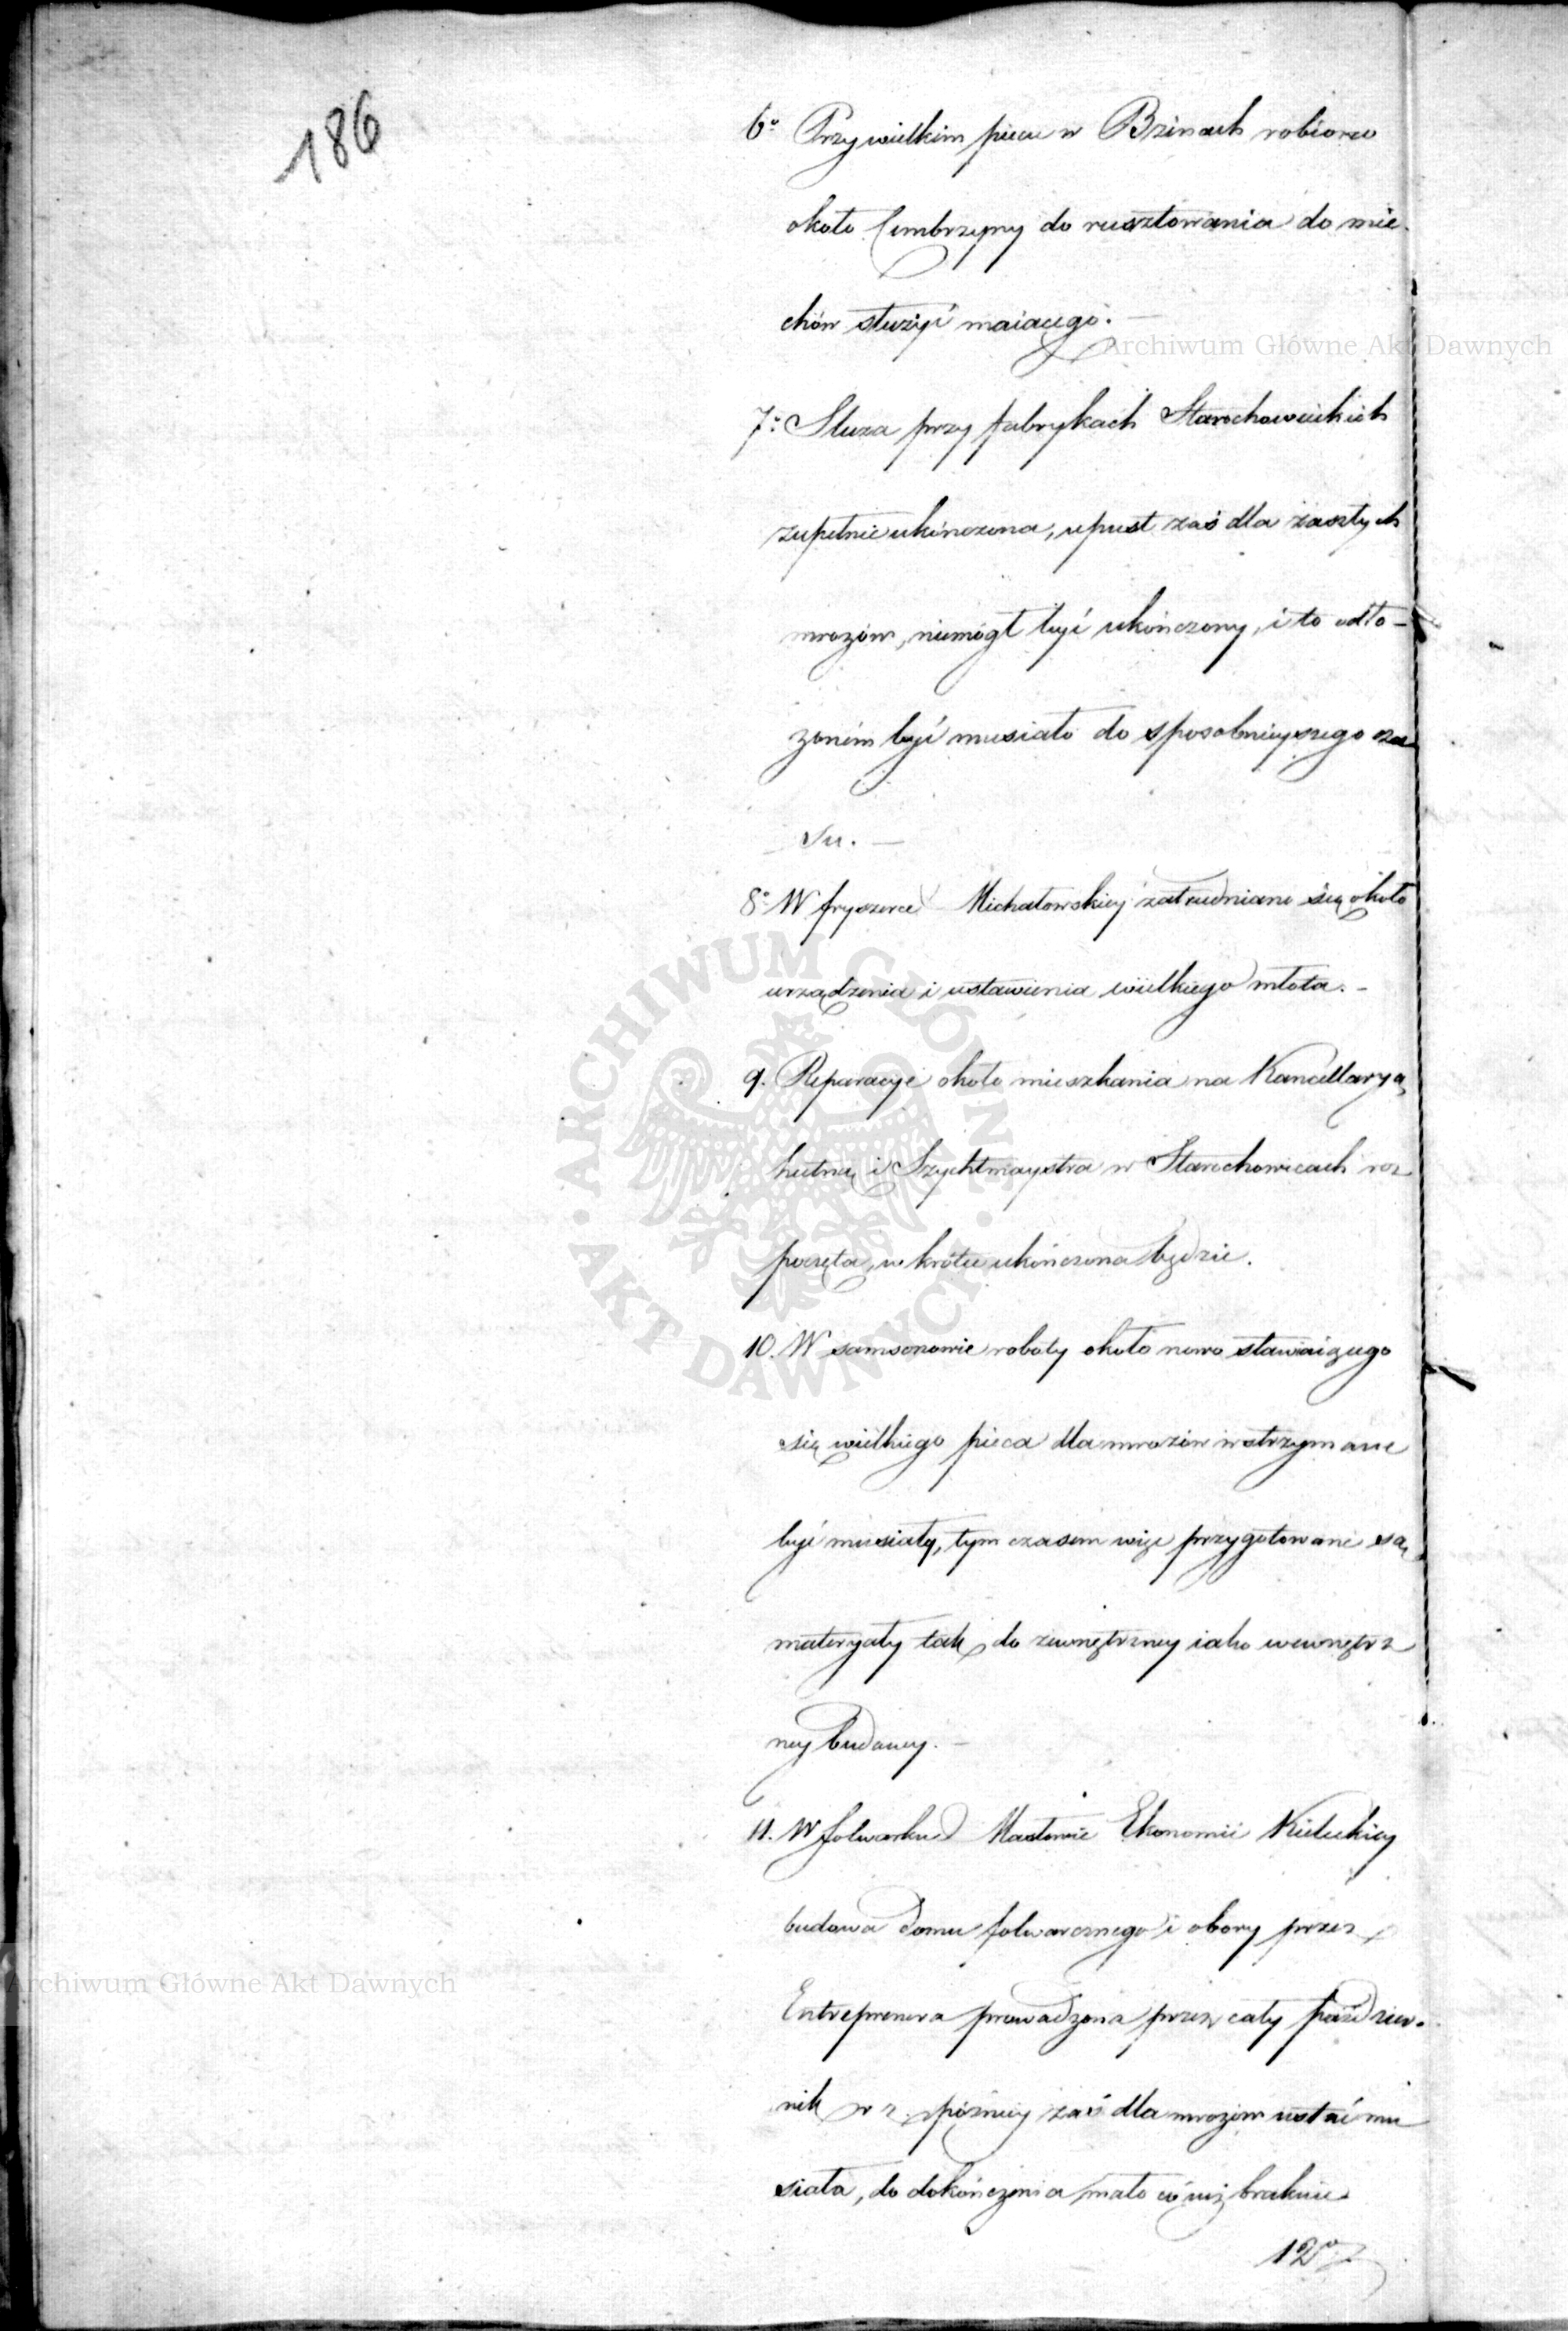 186
6º Przy wielkim piecu w Bzinach robiono
około Cembrzyny do rusztowania do mie-
chów służyć maiącego. —
7º Sluza przy fabrykach Starachowickich
zupełnie ukończona, upust zaś dla zaszłych
mrozów, niemógł być ukończony, i to odło-
żonem być musiało do sposobnieyszego cza
su. —
8º W fryszerce Michałowskiey zatrudniano się około
urządzenia i ustawienia wielkiego młota. -
9. Reparacye około mieszkania na Kancellaryą
hutną i Szychtmaystra w Starachowicach roz
poczęta, w krótce ukończona będzie.
10. W samsonowie roboty około nowo stawiaiącego
się wielkiego pieca dla mrozów wstrzymane
być musiały, tym czasem więc przygotowane są
materyały tak do zewnętrzney iako wewnętrz
ney budowy. —
11. W folwarku Masłowie Ekonomii Kieleckiey
budowa Domu folwarcznego i obory przez
Entreprenera prowadzona przez cały paździer-
nik w r. później zaś dla mrozów ustać mu
siała, do dokończenia mało co iuż braknie
12º
Archiwum Główne Akt Dawnych
ARCHIWUM GŁÓWNE · AKT DAWNYCH ·
Archiwum Główne Akt Dawnych